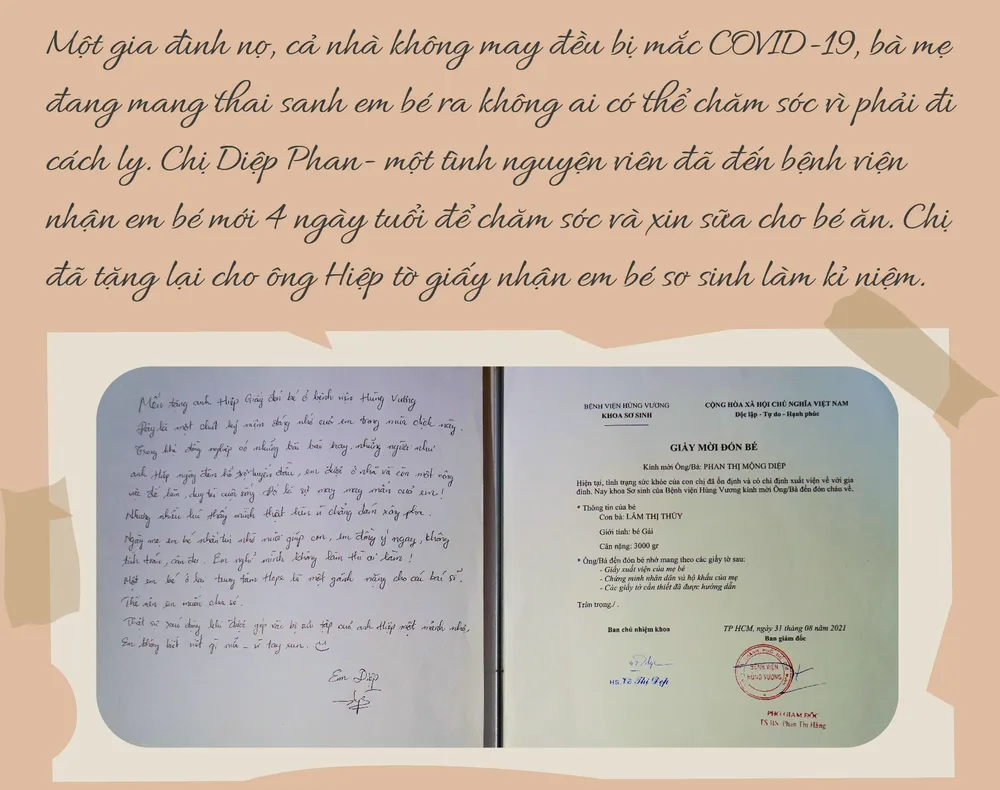 Một gia đình nọ, cả nhà không may đều bị mắc COVID-19, bà mẹ
đang mang thai sanh em bé ra không ai có thể chăm sóc vì phải đi
cách ly. Chị Diệp Phan- một tình nguyện viên đã đến bệnh viện
nhận em bé mới 4 ngày tuổi để chăm sóc và xin sữa cho bé ăn. Chị
đã tặng lại cho ông Hiệp tờ giấy nhận em bé sơ sinh làm kỉ niệm.
Mến tặng anh Hiệp Giấy đón bé ở bệnh viện Hùng Vương
Đây là một chút kỷ niệm đáng nhớ của em trong mùa dịch này.
Trong khi đồng nghiệp có những bài báo hay, những người như
anh Hiệp ngày đêm hỗ trợ tuyến đầu, em được ở nhà và còn một công
việc để làm, duy trì cuộc sống. Đó là sự may mắn của em!
Nhưng nhiều lúc thấy mình thật hèn vì chẳng dám xông pha.
Ngày mẹ em bé nhắn tin nhờ nuôi giúp con, em đồng ý ngay, không
tính toán, cân đo. Em nghĩ mình không làm thì ai làm!
Một em bé ở lại trung tâm Hope là một gánh nặng cho các bác sĩ.
Thế nên em muốn chia sẻ.
Thật sự xúc động khi được góp vào bộ sưu tập của anh Hiệp một mảnh nhỏ,
Em không biết viết gì nữa _ vì tay run.
Em Diệp
BỆNH VIỆN HÙNG VƯƠNG
KHOA SƠ SINH
CỘNG HÒA XÃ HỘI CHỦ NGHĨA VIỆT NAM
Độc lập - Tự do - Hạnh phúc
GIẤY MỜI ĐÓN BÉ
Kính mời Ông/Bà: PHAN THỊ MỘNG DIỆP
Hiện tại, tình trạng sức khỏe của con chị đã ổn định và có chỉ định xuất viện về với gia
đình. Nay khoa Sơ sinh của Bệnh viện Hùng Vương kính mời Ông/Bà đến đón cháu về.
* Thông tin của bé
Con bà: LÂM THỊ THỦY
Giới tính: bé Gái
Cân nặng: 3000 gr
* Ông/Bà đến đón bé nhớ mang theo các giấy tờ sau:
- Giấy xuất viện của mẹ bé
- Chứng minh nhân dân và hộ khẩu của mẹ
- Các giấy tờ cần thiết đã được hướng dẫn
Trân trọng./.
Ban chủ nhiệm khoa
TP HCM, ngày 31 tháng 08 năm 2021
Ban giám đốc
BỆNH VIỆN
HÙNG VƯƠNG
HS.TC Thị Đẹp
PHÓ GIÁM ĐỐC
TS.BS. Phan Thị Hằng